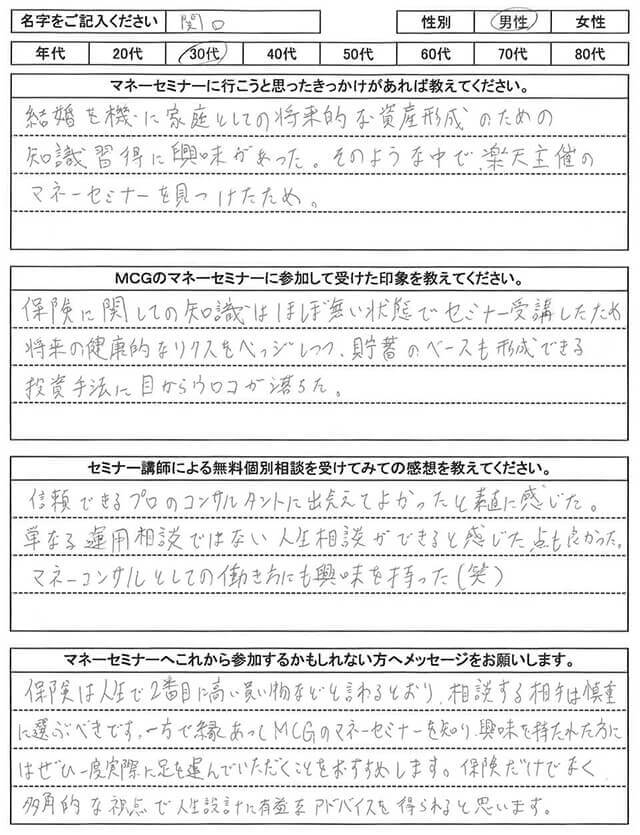 名字をご記入ください 関口 性別 男性 女性
年代 20代 30代 40代 50代 60代 70代 80代
マネーセミナーに行こうと思ったきっかけがあれば教えてください。
結婚を機に家庭としての将来的な資産形成のための
知識習得に興味があった。そのような中で、楽天主催の
マネーセミナーを見つけたため。
MCGのマネーセミナーに参加して受けた印象を教えてください。
保険に関しての知識はほぼ無い状態でセミナー受講したため
将来の健康的なリクスをヘッジしつつ、貯蓄のベースも形成できる
投資手法に目からウロコが落ちた。
セミナー講師による無料個別相談を受けてみての感想を教えてください。
信頼できるプロのコンサルタントに出会えてよかったと素直に感じた。
単なる運用相談ではない人生相談ができると感じた点も良かった。
マネーコンサルとしての働き方にも興味を持った(笑)
マネーセミナーへこれから参加するかもしれない方へメッセージをお願いします。
保険は人生で2番目に高い買い物などと言われるとおり、相談する相手は慎重
に選ぶべきです。一方で縁あってMCGのマネーセミナーを知り、興味を持たれた方に
はぜひ一度実際に足を運んでいただくことをおすすめします。保険だけでなく
多角的な視点で人生設計に有益なアドバイスを得られると思います。